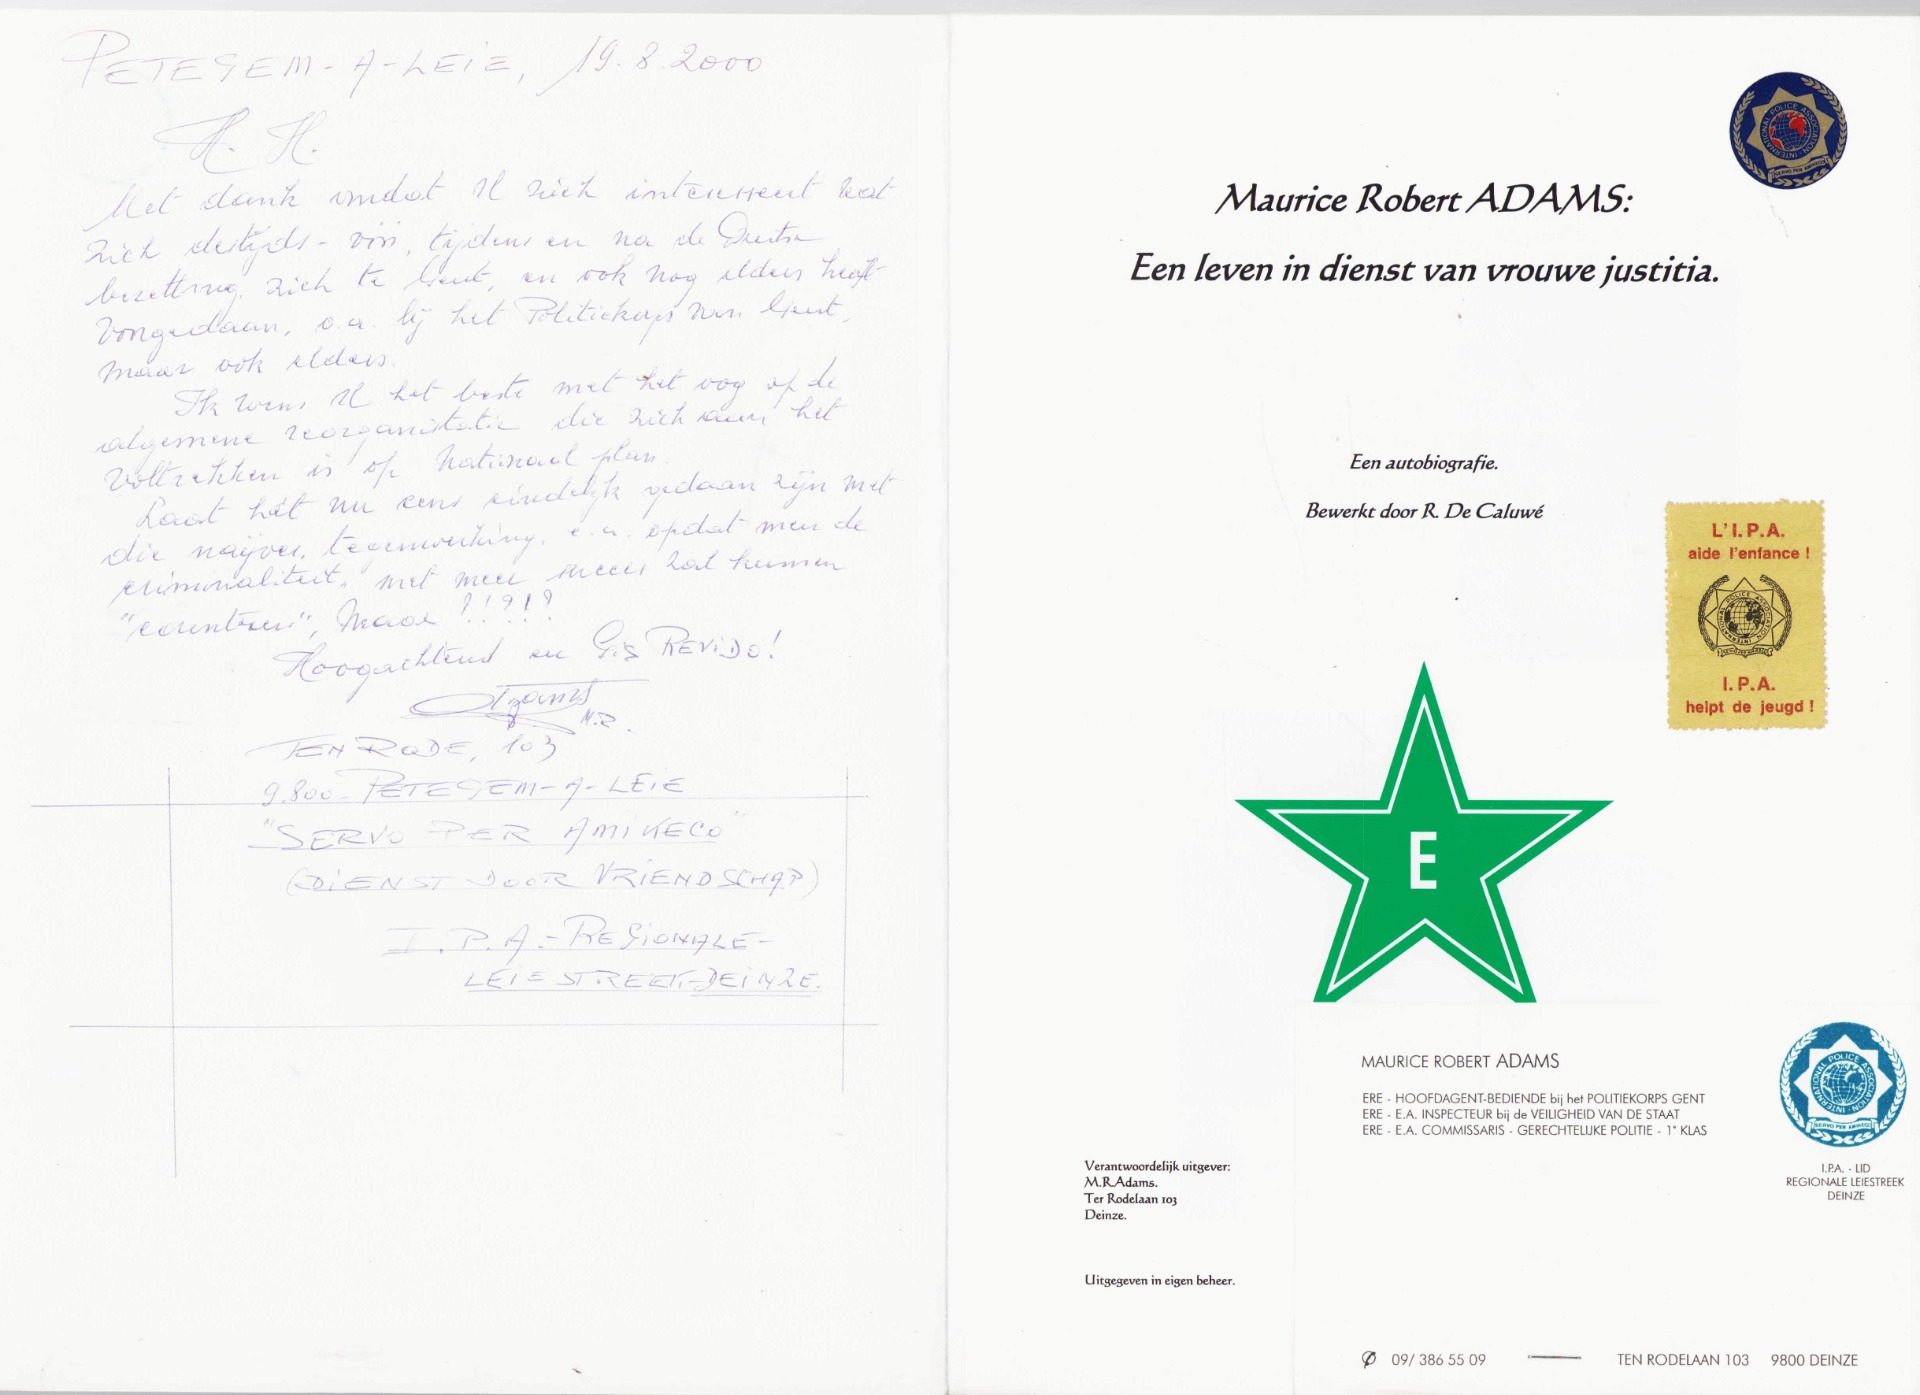 PETEGEM-A-LEIE, 19.8.2000
H. H.
Met dank omdat U zich interesseert wat
zich destijds - vóór, tijdens en na de Duitse
bezetting, zich te Gent, en ook nog elders heeft
voorgedaan, o.a. bij het Politiekorps van Gent,
maar ook elders.
Ik wens U het beste met het oog op de
algemene reorganisatie die zich aan het
voltrekken is op Nationaal plan.
Laat het nu eens eindelijk gedaan zijn met
die naijver, tegenwerking, e.a. opdat men de
criminaliteit, met meer succes zal kunnen
"counteren", Maar ?!?!?
Hoogachtend en Ĝis REViDO!
Adams
M.R.
TEN RODE, 103
9.800-PETEGEM-A-LEIE
"SERVO PER AMIKECO"
(DIENST DOOR VRIENDSCHAP)
I.P.A.-REGIONALE-
LEIESTREEK-DEINZE.
INTERNATIONAL POLICE ASSOCIATION
SERVO PER AMIKECO
Maurice Robert ADAMS:
Een leven in dienst van vrouwe justitia.
Een autobiografie.
Bewerkt door R. De Caluwé
L'I.P.A.
aide l'enfance !
I.P.A.
helpt de jeugd !
E
MAURICE ROBERT ADAMS
ERE - HOOFDAGENT-BEDIENDE bij het POLITIEKORPS GENT
ERE - E.A. INSPECTEUR bij de VEILIGHEID VAN DE STAAT
ERE - E.A. COMMISSARIS - GERECHTELIJKE POLITIE - 1° KLAS
INTERNATIONAL POLICE ASSOCIATION
SERVO PER AMIKECO
I.P.A. - LID
REGIONALE LEIESTREEK
DEINZE
Verantwoordelijk uitgever:
M.R.Adams.
Ter Rodelaan 103
Deinze.
Uitgegeven in eigen beheer.
09/ 386 55 09 TEN RODELAAN 103 9800 DEINZE